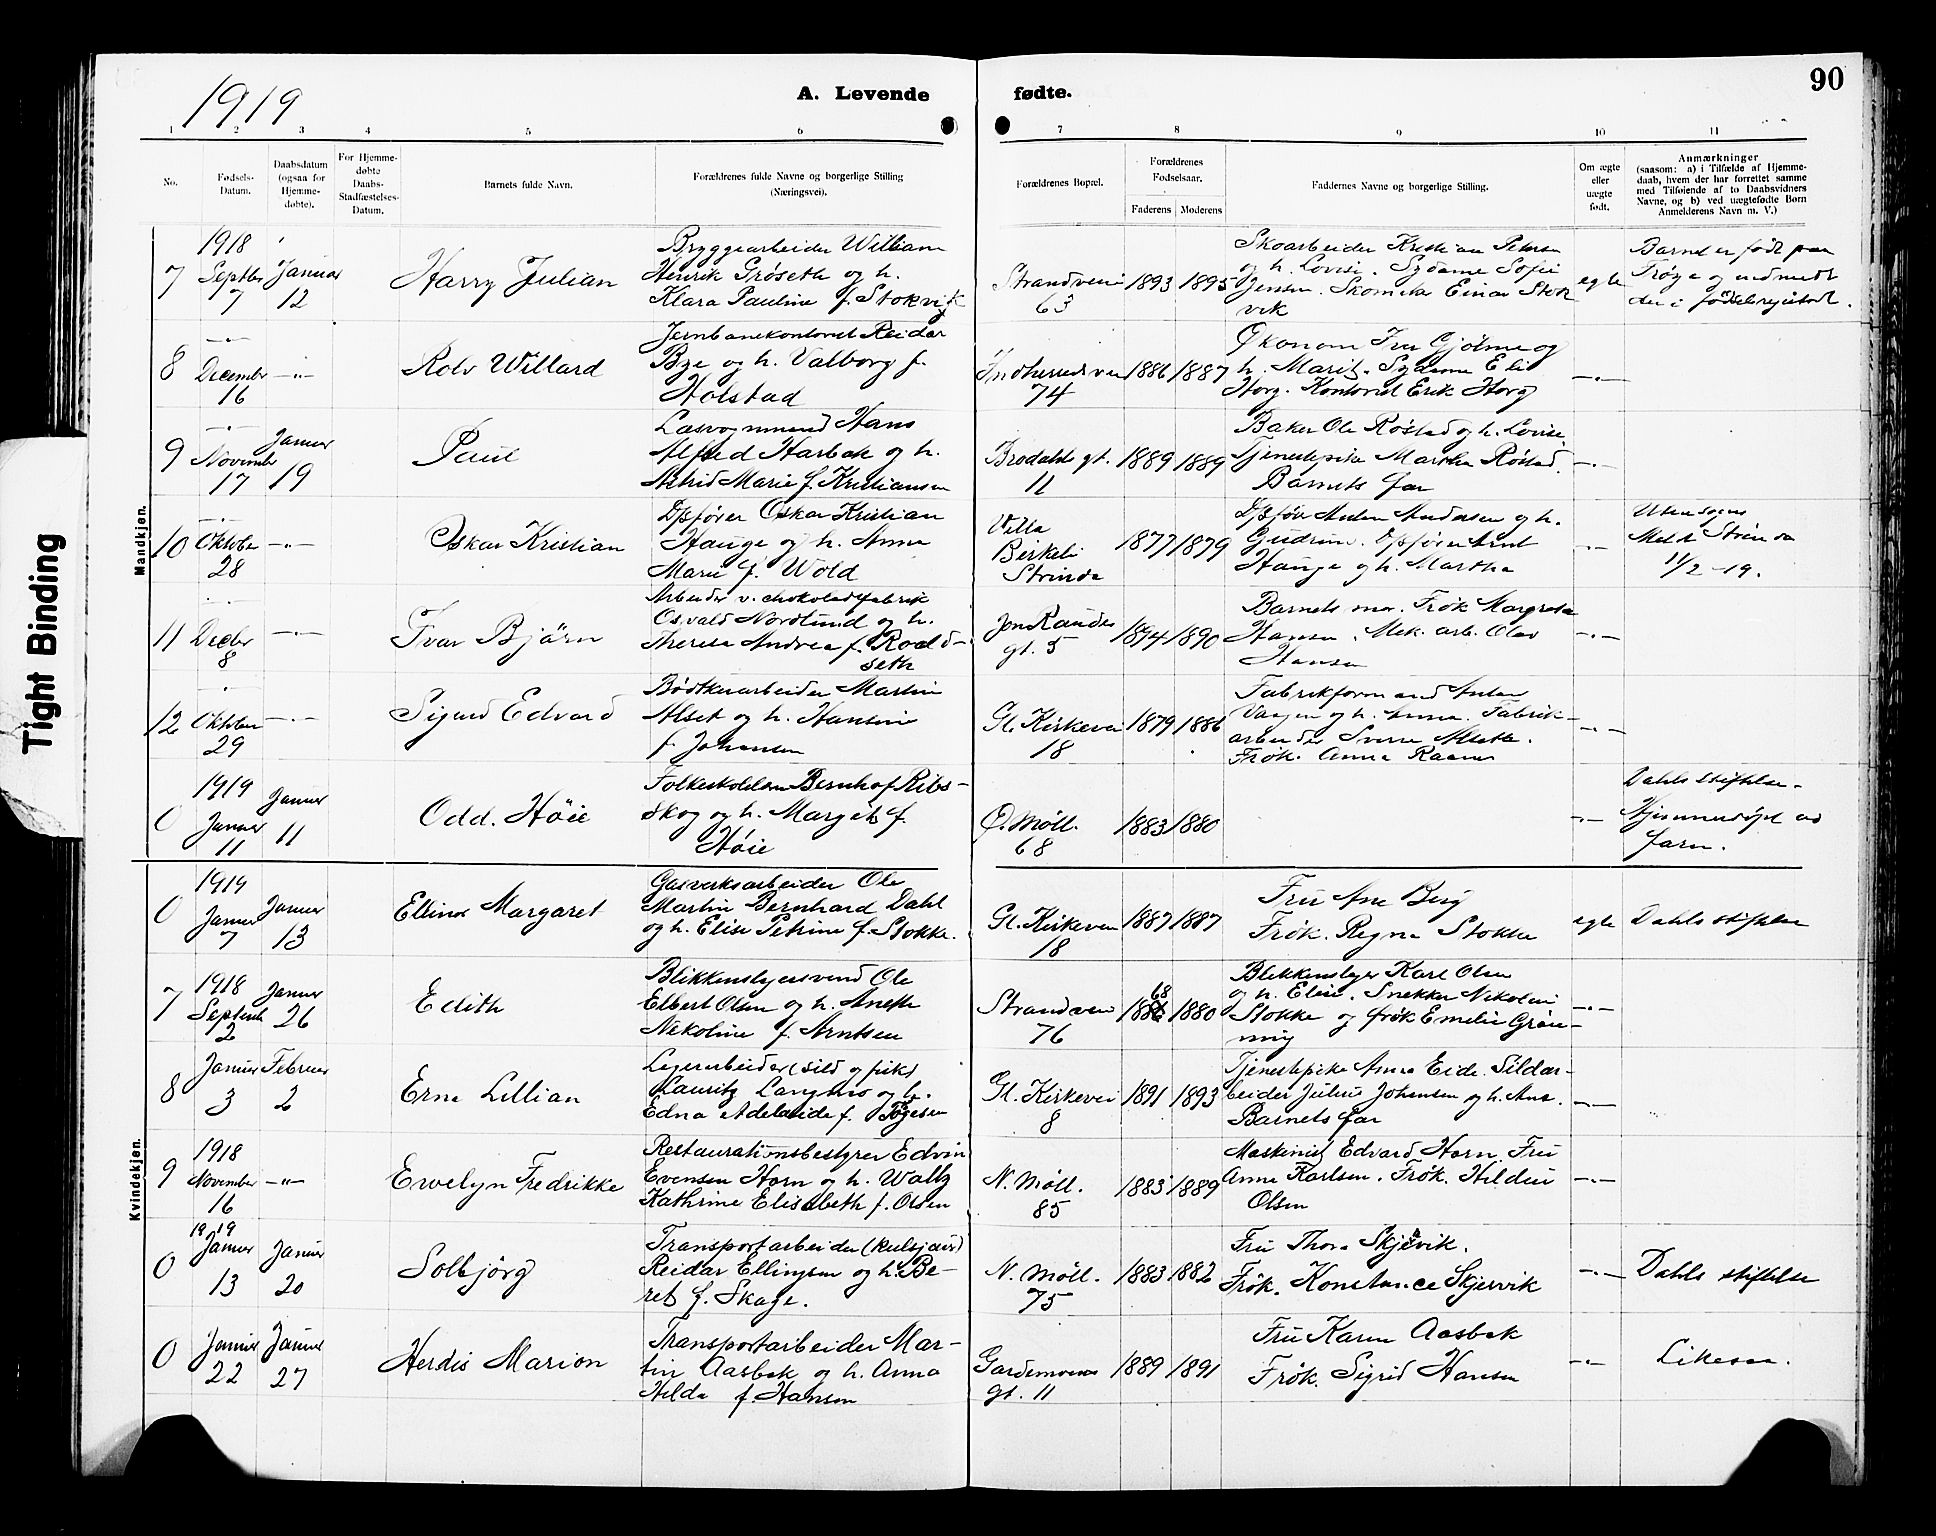 1919
A. Levende fødte.
90
1 2 3 4 5 6 7 8 9 10 11
No.
Fødsels-
Datum.
Daabsdatum
(ogsaa for
Hjemme-
døbte).
For Hjemme-
døbte
Daabs-
Stadfæstelses-
Datum.
Barnets fulde Navn.
Forældrenes fulde Navne og borgerlige Stilling
(Næringsvei).
Forældrenes Bopæl.
Forældrenes
Fødselsaar.
Faderens Moderens
Faddernes Navne og borgerlige Stilling.
Om ægte
eller
uægte
født.
Anmærkninger
(saasom: a) i Tilfælde af Hjemme-
daab, hvem der har forrettet samme
med Tilføiende af to Daabsvidners
Navne, og b) ved uægtefødte Børn
Anmelderens Navn m. V.)
Mandkjøn.
7
1918
Septbr
7
Januar
12
Harry Julian
Bryggearbeider William
Henrik Grøseth og h.
Klara Pauline f. Stokvik
Strandveien
63
1893 1895
Skoarbeider Kristian Petersen
og h. Lovise. Sydame Sofie
Jensen. Skomaker Einar Stok
vik
egte
Barnet er født paa
Frøya og indmeldt
der i fødselregistret.
8
-"-
December
16
-"-
Rolv Willard
Jernbanekontorist Reidar
Bye og h. Valborg f.
Holstad
Indherredsvei
74
1886 1887
Økonom Iver Gjølme og
h. Marit. Sydame Elis
Horg. Kontorist Erik Horg
-"-
9
-"-
November
17
Januar
19
Paul
Læsvognmand Hans
Alfred Harbak og h.
Astrid Marie f. Kristiansen
Brodals gt.
11
1889 1889
Baker Ole Røstad og h. Lovise.
Tjenestepike Martha Røstad.
Barnets far
-"-
10
-"-
Oktober
28
-"-
Oskar Kristian
Dpfører Oskar Kristian
Hauge og h. Anna
Marie f. Wold
Villa
Birkeli
Strinda
1877 1879
Dpfør Anton Andersen og h.
Gudrun. Dpfører Arnt
Hauge og h. Martha
-"-
Utensogns
Meldt Strinda
11/2-19.
11
-"-
Decbr
8
-"-
Ivar Bjørn
Arbeider v. chokoladefabrik
Osvald Nordlund og h.
Therese Andrea f. Roald-
seth
Jon Raudes
gt. 5
1894 1890
Barnets mor. Frøk Margrete
Hansen. Mek. arb. Olav
Hansen
-"-
12
-"-
Oktober
29
-"-
Sigurd Edvard
Bødtkerarbeider Martin
Alset og h. Hansine
f. Johansen
Gl. Kirkevei
18
1879 1886
Fabrikformand Anton
Vaagen og h. Anna. Fabrik-
arbeider Sverre Alseth.
Frøk. Anna Raanes
-"-
0
1919
Januar
11
Januar
11
Odd. Høie
Folkeskolelærer Bernhof Ribs-
skog og h. Margit f.
Høie
Ø. Møll.
68
1883 1880
-"-
Dahls stiftelse.
Hjemmedøpt av
faren.
Kvindekjøn.
0
1919
Januar
7
Januar
13
Ellinor Margaret
Gasverksarbeider Ole
Martin Bernhard Dahl
og h. Elise Petrine f. Stokke.
Gl. Kirkevei
18
1887 1887
Fru Ane Berg
Frøk. Regna Stokke
egte
Dahls stiftelse
7
1918
Septemb
2
Januar
26
Edith
Blikkenslagersvend Ole
Elbert Olsen og h. Aneth
Nikoline f. Arntsen
Strandveien
76
68
188 1880
Blikkenslager Karl Olsen
og h. Elise. Snekker Nikolai
Stokke og frøk Emelie Grøn-
ning
-"-
8
Januar
3
Februar
2
Erna Lillian
Lagerarbeider (sild og fisk)
Lauritz Langmo og h.
Edna Adelaide f. Bøgesen
Gl. Kirkevei
8
1891 1893
Tjenestepike Anna Eide. Sildar-
beider Julius Johansen og h. Ane.
Barnets far
-"-
9
1918
November
16
-"-
Evelyn Fredrikke
Restaurationsbestyrer Edvin
Evensen Horn og h. Wally
Kathrine Elisabeth f. Olsen
N. Møll.
85
1883 1889
Maskinist Edvard Horn. Fru
Anna Karlsen. Frøk. Hildur
Olsen
-"-
0
1919
Januar
13
Januar
20
Solbjørg
Transportarbeider (kulsjauer)
Reidar Ellingsen og h. Be-
ret f. Skage.
N. Møll.
75
1883 1882
Fru Thora Skjervik.
Frøk. Konstance Skjervik
-"-
Dahls stiftelse
0
Januar
22
Januar
27
Herdis Marion
Transportarbeider Mar-
tin Aasbak og h. Anna
Hilda f. Hansen
Gardemoens
gt. 11
1889 1891
Fru Karen Aasbak
Frøk. Sigrid Hansen
-"-
Likesaa.
Tight Binding